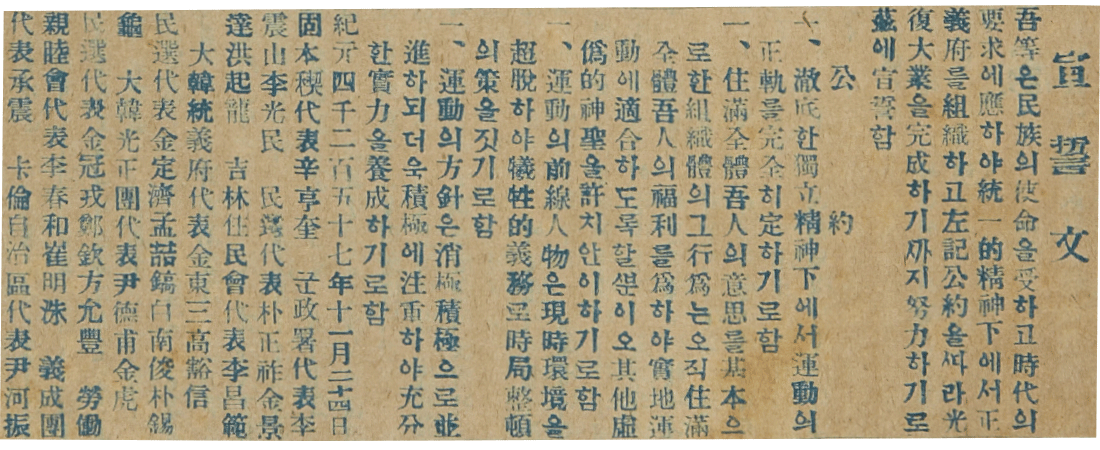 宣誓文
吾等은民族의使命을受하고時代의
要求에應하야統一的精神下에서正
義府를組織하고左記公約을따라光
復大業을完成하기까지努力하기로
茲에宣誓함
公約
一、澈底한獨立精神下에서運動의
正軌를完全히定하기로함
一、住滿全體吾人의意思를基本으
로한組織體의그行爲는오직住滿
全體吾人의福利를爲하야實地運
動에適合하도록할뿐이오其他虛
僞的神聖을許치안이하기로함
一、運動의前線人物은現時環境을
超脫하야犧牲的義務로時局整頓
의策을짓기로함
一、運動의方針은消極積極으로並
進하되더욱積極에注重하야充分
한實力을養成하기로함
紀元四千二百五十七年十一月二十四日
固本稧代表辛亨奎 군政署代表李
震山李光民 民選代表朴正祚金景
達洪起龍 吉林住民會代表李昌範
大韓統義府代表金東三高豁信
民選代表金定濟孟喆鎬白南俊朴錫
龜 大韓光正團代表尹德甫金虎
民選代表金冠戎鄭欽方允豐 勞働
親睦會代表李春和崔明洙 義成團
代表承震 卡倫自治區代表尹河振